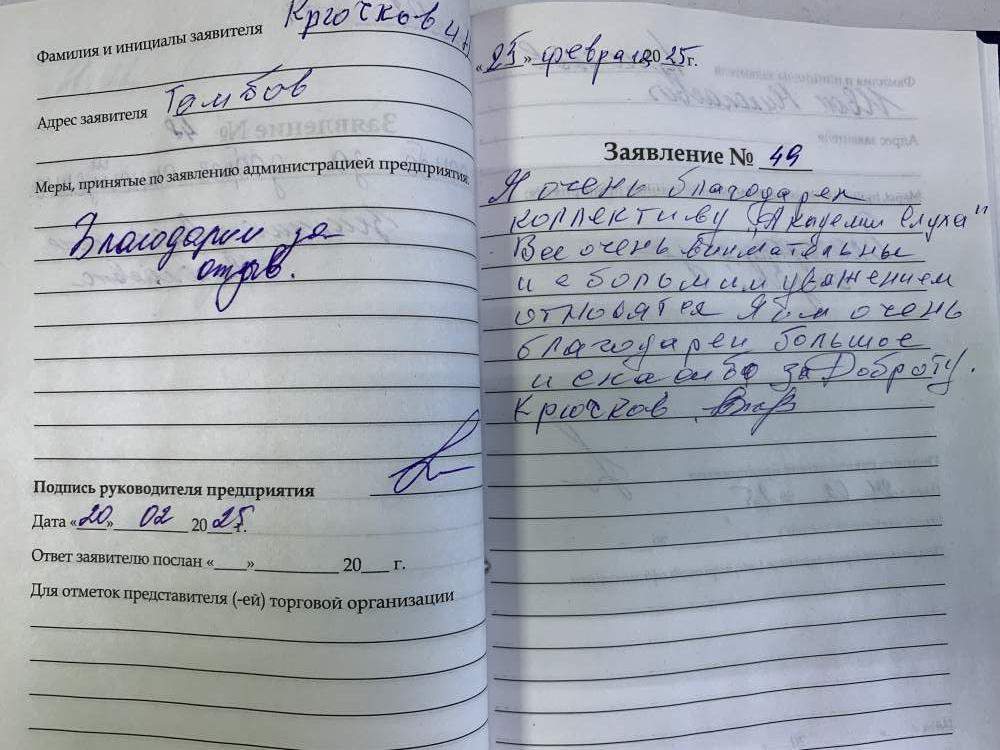 Фамилия и инициалы заявителя Крючков
Адрес заявителя Тамбов
Меры, принятые по заявлению администрацией предприятия:
Благодарим за
отзыв.
Подпись руководителя предприятия
Дата «20» 02 2025г.
Ответ заявителю послан «____»__________ 20___ г.
Для отметок представителя (-ей) торговой организации
«25» февраля 2025г.
Заявление № 49
Я очень благодарен
коллективу "Академии слуха"
Все очень внимательны
и с большим уважением
относятся Я вам очень
благодарен большое
и спасибо за Доброту.
Крючков